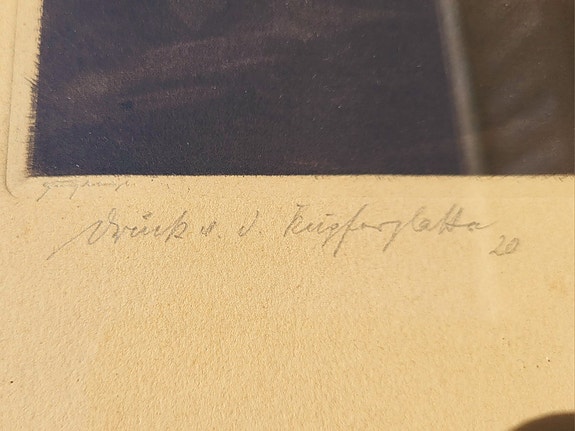 Druck v. d. Kupferplatte
20